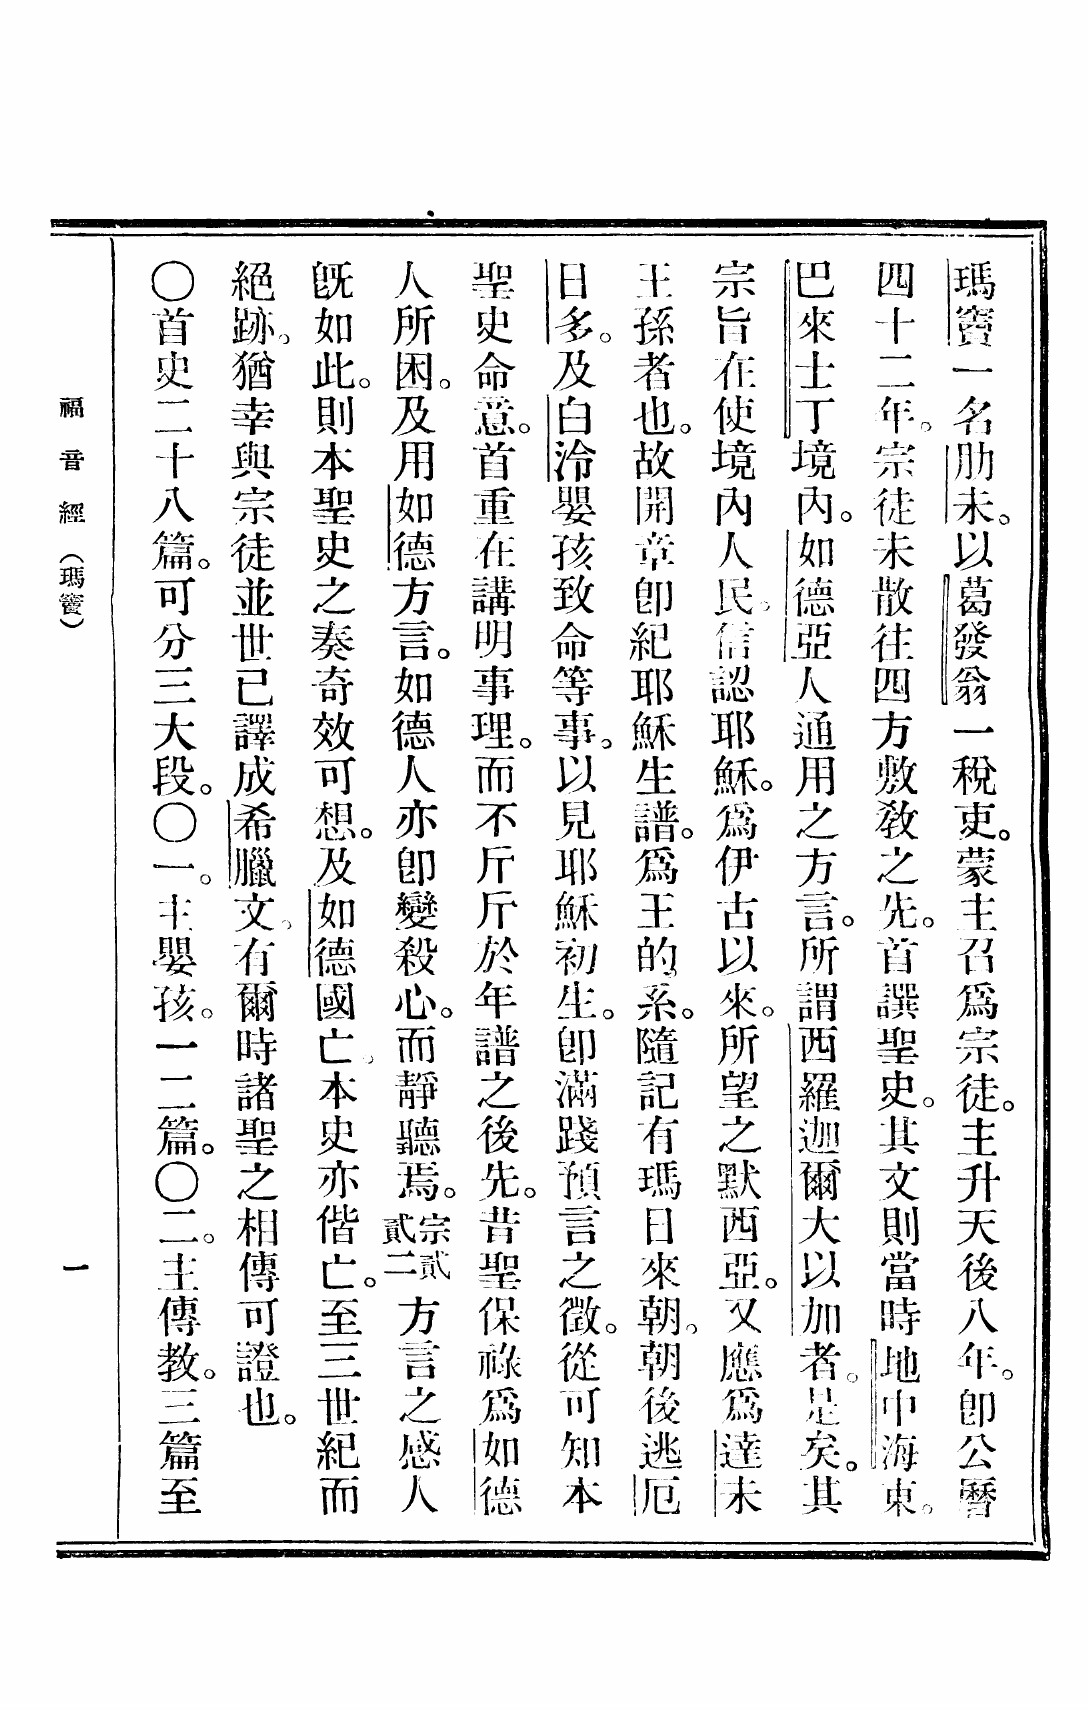 瑪竇一名肋未。以葛發翁一稅吏。蒙主召爲宗徒。主升天後八年。卽公曆
四十二年。宗徒未散往四方敷敎之先。首譔聖史。其文則當時地中海東。
巴來士丁境內。如德亞人通用之方言。所謂西羅迦爾大以加者。是矣。其
宗旨在使境內人民。信認耶穌。爲伊古以來。所望之默西亞。又應爲達未
王孫者也。故開章卽紀耶穌生譜。爲王的系。隨記有瑪日來朝。朝後逃厄
日多。及白泠嬰孩致命等事。以見耶穌初生。卽滿踐預言之徵。從可知本
聖史命意。首重在講明事理。而不斤斤於年譜之後先。昔聖保祿爲如德
人所困。及用如德方言。如德人亦卽變殺心。而靜聽焉。宗貳貳二方言之感人
旣如此。則本聖史之奏奇效可想。及如德國亡。本史亦偕亡。至三世紀而
絕跡。猶幸與宗徒並世已譯成希臘文。有爾時諸聖之相傳可證也。
〇首史二十八篇。可分三大段。〇一。主嬰孩。一二篇。〇二。主傳教。三篇至
福音經（瑪竇）
一